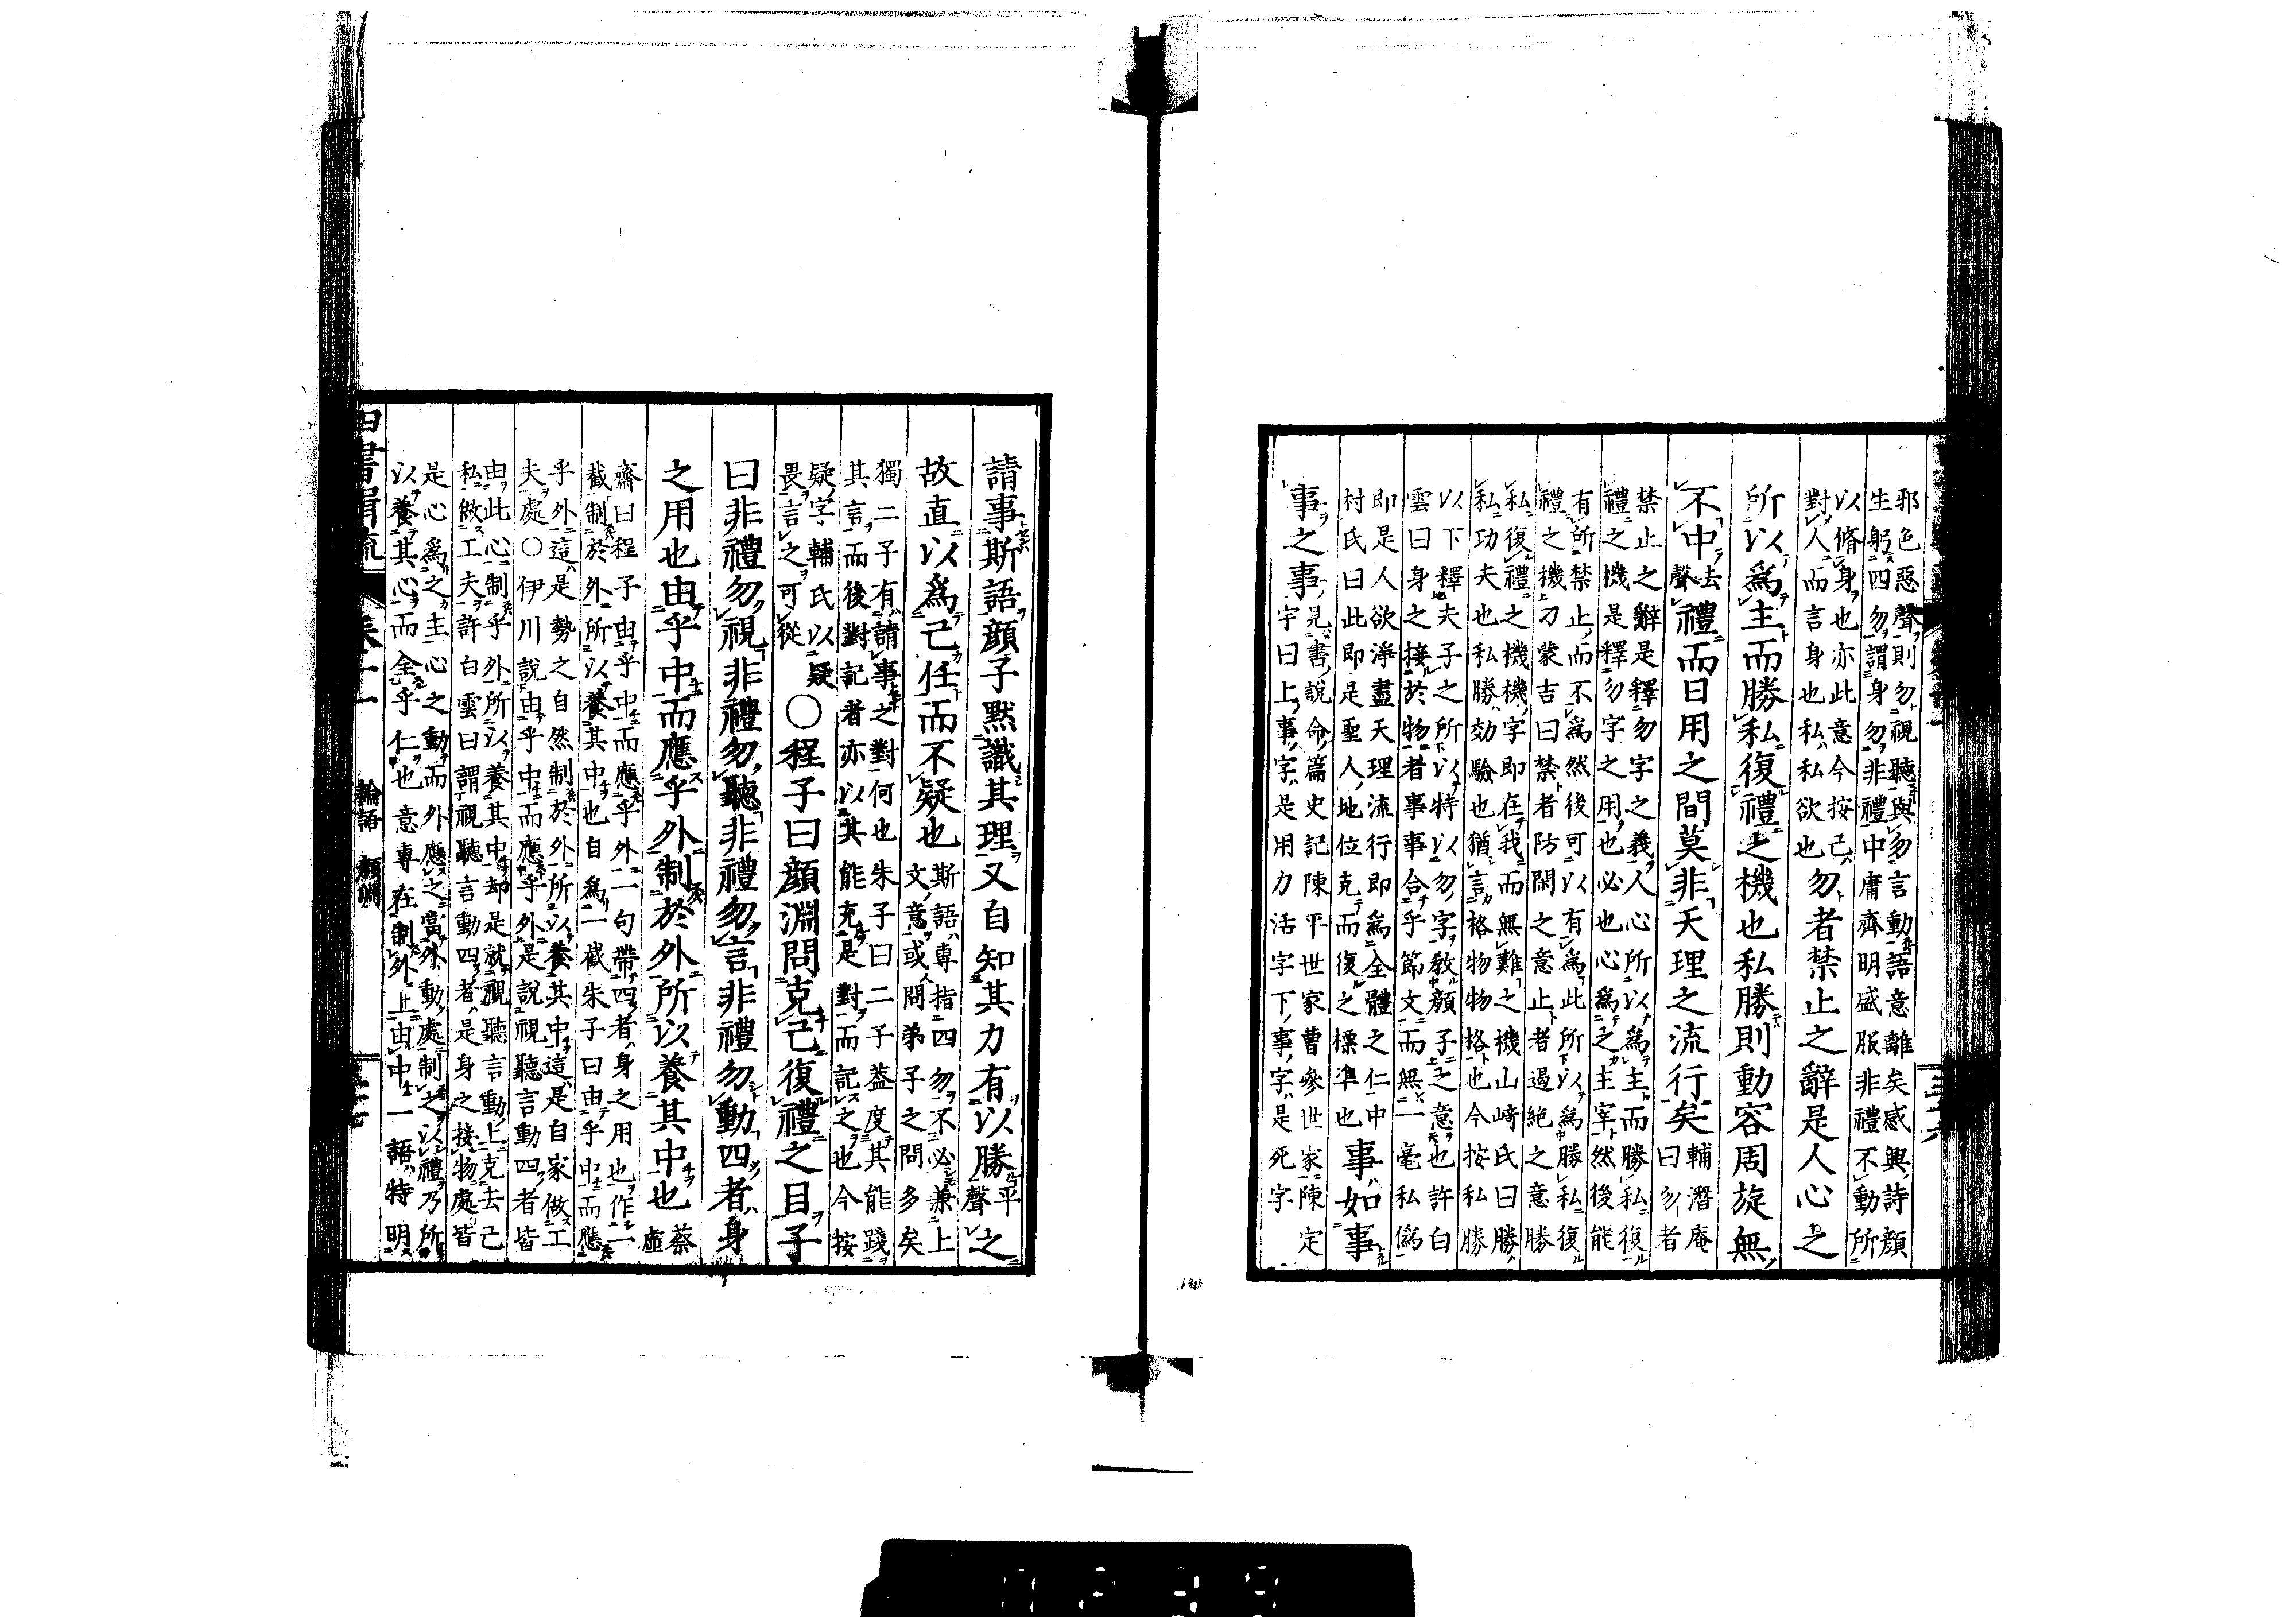 邪色惡聲則勿視聽與勿言動語意離矣感興詩顔
生躬四勿謂身勿非禮中庸齊明盛服非禮不動所
以脩身也亦此意今按己
對人而言身也私私欲也
勿者禁止之辭是人心之
所以爲主而勝私復禮之機也私勝則動容周旋無
不中去聲禮而日用之間莫非天理之流行矣
輔潛庵
曰勿者
禁止之辭是釋勿字之義人心所以爲主而勝私復
禮之機是釋勿字之用也必也心爲之主宰然後能
有所禁止而不爲然後可以有爲此所以爲勝私復
禮之機刀蒙吉曰禁者防閑之意止者遏絶之意勝
私復禮之機機字即在我而無難之機山﨑氏曰勝
私功夫也私勝効驗也猶言格物物格也今按私勝
以下釋夫子之所以特以勿字教顔子之意也許白
雲曰身之接於物者事事合乎節文而無一毫私僞
即是人欲淨盡天理流行即爲全體之仁中
村氏曰此即是聖人地位克而復之標凖也
事如事
事之事
見書說命篇史記陳平世家曹參世家陳定
宇曰上事字是用力活字下事字是死字
請事斯語顔子黙識其理又自知其力有以勝平聲之
故直以爲己任而不疑也
斯語專指四勿不必兼上
文意或人問弟子之問多矣
獨二子有請事之對何也朱子曰二子蓋度其能踐
其言而後對記者亦以其能充是對而記之也今按
疑字輔氏以疑
畏言之可從
○程子曰顔淵問克己復禮之目子
曰非禮勿視非禮勿聽非禮勿言非禮勿動四者身
之用也由乎中而應乎外制於外所以養其中也
蔡
虛
齋曰程子由乎中而應乎外二句帶四者身之用也作一
截制於外所以養其中也自爲一截朱子曰由乎中而應
乎外這是勢之自然制於外所以養其中這是自家做工
夫處○伊川說由乎中而應乎外是說視聽言動四者皆
由此心制乎外所以養其中却是就視聽言動上克去己
私做工夫許白雲曰謂視聽言動四者是身之接物處皆
是心爲之主心之動而外應之當外動處制之以禮乃所
以養其心而全乎仁也意專在制外上由中一語特明